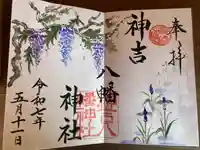 奉拝
神吉
八幡
神社
令和七年
五月十一日